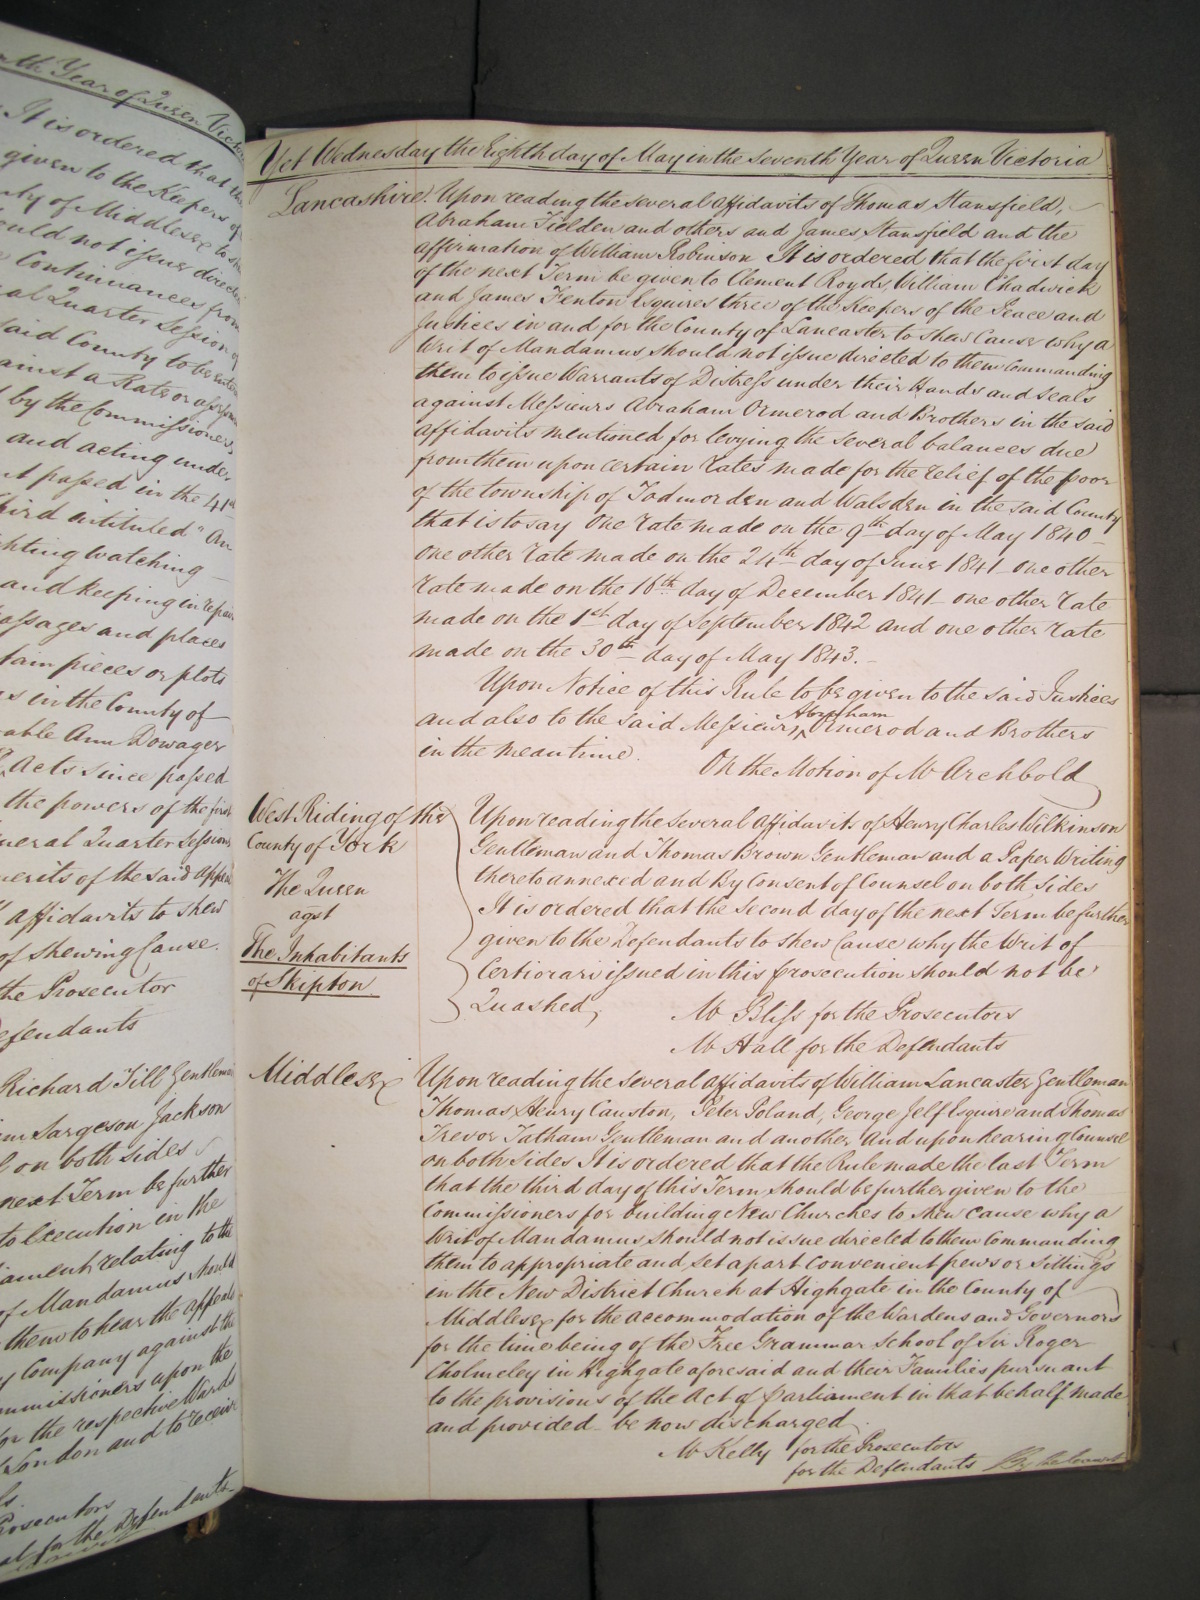 nth Year of Queen Victo
It is ordered that the
given to the Keepers of
nty of Middlesex to sh
ould not issue directe
Continuances from
al Quarter Session of
said County to be ente
ainst a Rate or assess
by the Commissioners
and acting under
t passed in the 41st
hird intituled "An
ghting watching
and keeping in repair
assages and places
tain pieces or plots
s in the County of
able Ann Dowager
Acts since passed
the powers of the first
neral Quarter Sessions
merits of the said appeal
affidavits to shew
of shewing Cause.
the Prosecutor
efendants
Richard Till Gentleman
am Sargeson Jackson
l on both sides
next Term be further
to Execution in the
iament relating to the
of Mandamus should
them to hear the appeals
y Company against the
mmissioners upon the
for the respective Wards
London and to receive
ls.
Prosecutors
for the Defendants
Yet Wednesday the Eighth day of May in the seventh Year of Queen Victoria
Lancashire. Upon reading the several affidavits of Thomas Stansfield,
Abraham Fielden and others and James Stansfield and the
affirmation of William Robinson It is ordered that the first day
of the next Term be given to Clement Royds, William Chadwick
and James Fenton Esquires three of the Keepers of the Peace and
Justices in and for the County of Lancaster to shew Cause why a
Writ of Mandamus should not issue directed to them Commanding
them to issue Warrants of Distress under their Hands and seals
against Messieurs Abraham Ormerod and Brothers in the said
affidavits mentioned for levying the several balances due
from them upon certain rates made for the relief of the poor
of the township of Todmorden and Walsden in the said County
that is to say One rate made on the 9th day of May 1840
one other rate made on the 24th day of June 1841 one other
rate made on the 16th day of December 1841 one other rate
made on the 1st day of September 1842 and one other rate
made on the 30th day of May 1843.
Upon Notice of this Rule to be given to the said Justices
and also to the said Messieurs Abraham Ormerod and Brothers
in the meantime.
On the Motion of Mr Archbold
West Riding of the
County of York
The Queen
agst
The Inhabitants
of Skipton
Upon reading the several affidavits of Henry Charles Wilkinson
Gentleman and Thomas Brown Gentleman and a Paper Writing
thereto annexed and By Consent of Counsel on both sides
It is ordered that the second day of the next Term be further
given to the Defendants to shew Cause why the Writ of
Certiorari issued in this prosecution should not be
Quashed,
Mr Bliss for the Prosecutors
Mr Hall for the Defendants
Middlesex Upon reading the several affidavits of William Lancaster Gentleman
Thomas Henry Causton, Peter Poland, George Jelf Esquire and Thomas
Trevor Tatham Gentleman and another And upon hearing Counsel
on both sides It is ordered that the Rule made the last Term
that the third day of this Term should be further given to the
Commissioners for building New Churches to shew cause why a
Writ of Mandamus should not issue directed to them Commanding
them to appropriate and set apart convenient pews or sittings
in the New District Church at Highgate in the County of
Middlesex for the accommodation of the Wardens and Governors
for the time being of the Free Grammar School of Sir Roger
Cholmeley in Highgate aforesaid and their Families pursuant
to the provisions of the Act of Parliament in that behalf made
and provided be now discharged
Mr Kelly for the Prosecutors
for the Defendants By the Court